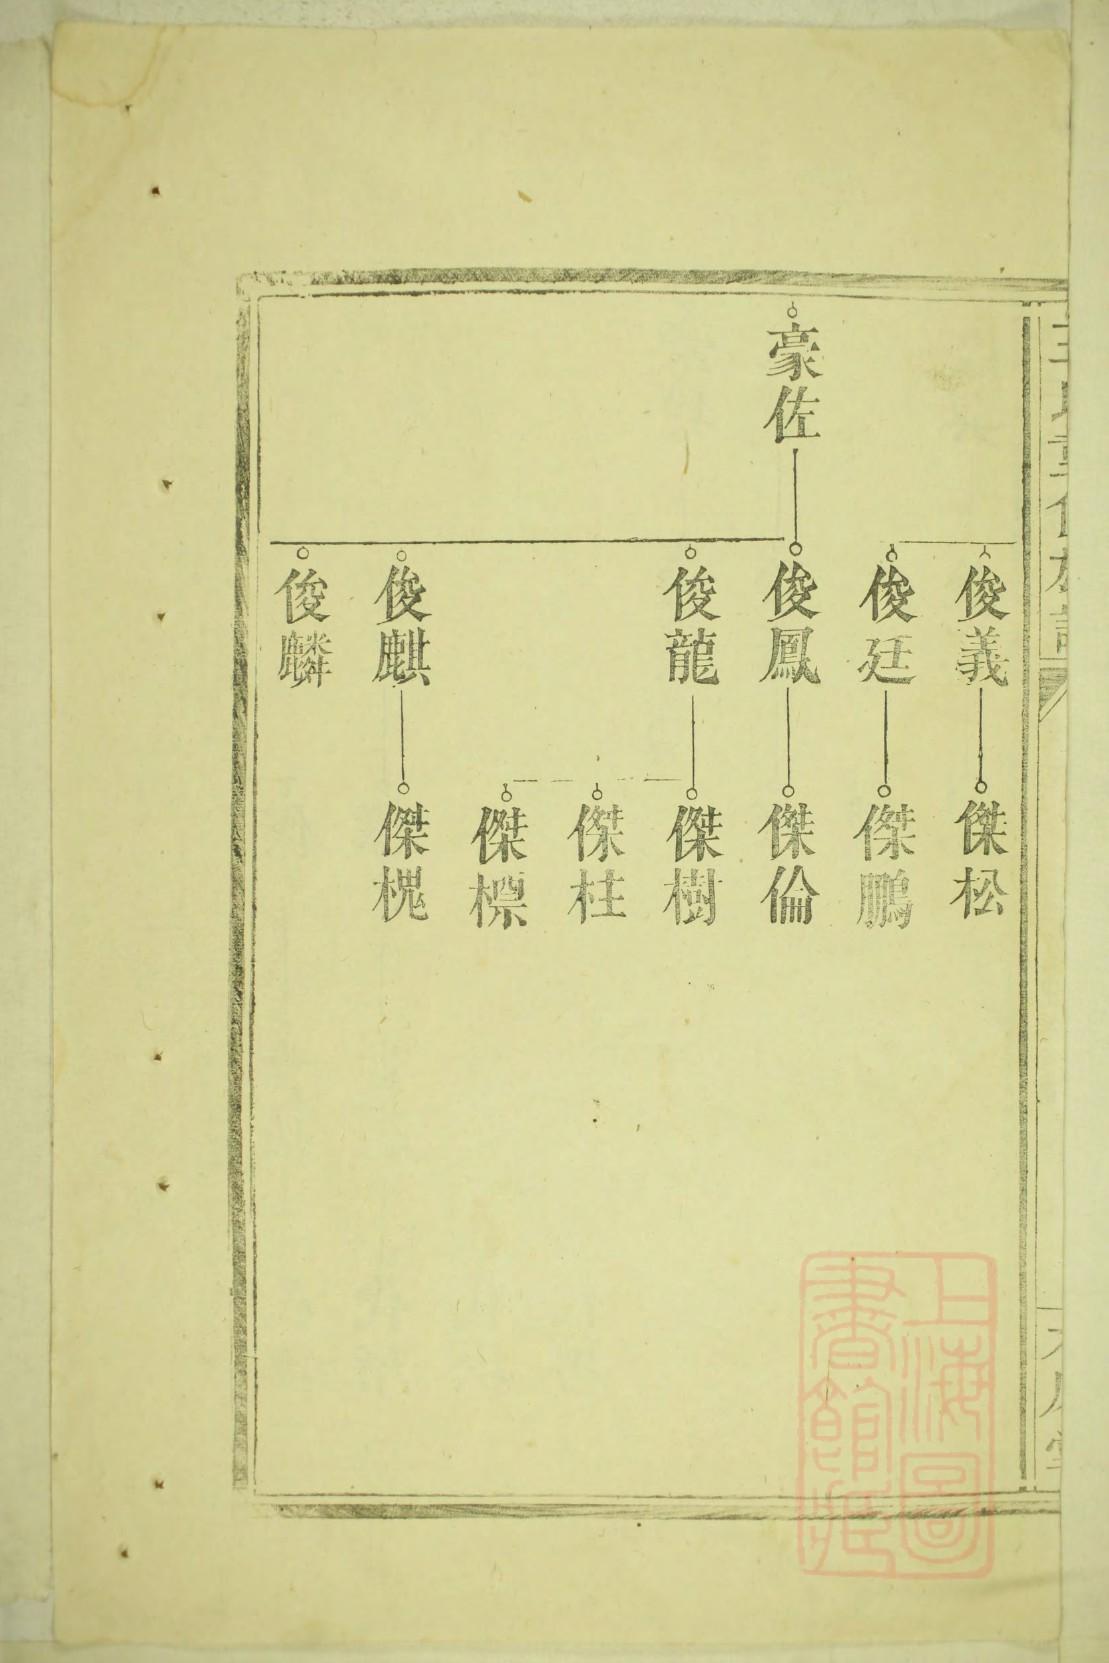 豪佐
俊義
俊廷
俊鳳
俊龍
俊麒
俊麟
傑松
傑鵬
傑倫
傑樹
傑柱
傑標
傑槐
上海圖
書館藏